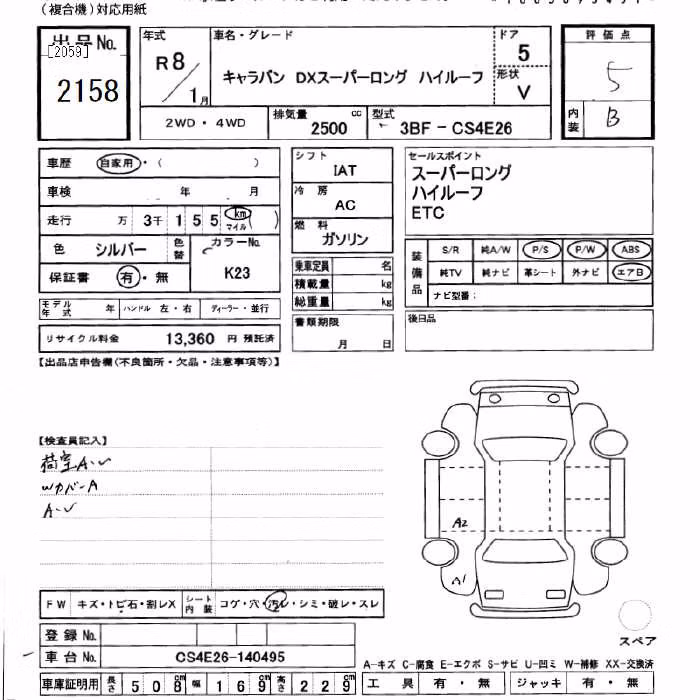 (複合機)対応用紙
出品No.
[2059]
2158
年式
R8/1月
車名・グレード
キャラバン DXスーパーロング ハイルーフ
ドア
5
形状
V
2WD・4WD
排気量
2500 cc
型式
3BF-CS4E26
評価点
5
内装
B
車歴 自家用・( )
車検 年 月
走行 万 3千 1 5 5 km マイル ( )
色 シルバー 色替
カラーNo.
K23
保証書 有・無
モデル年式 年 ハンドル 左・右 ディーラー・並行
リサイクル料金 13,360 円 預託済
シフト
IAT
冷房
AC
燃料
ガソリン
乗車定員 名
積載量 kg
総重量 kg
書類期限
月 日
セールスポイント
スーパーロング
ハイルーフ
ETC
装備品
S/R 純A/W P/S P/W ABS
純TV 純ナビ 革シート 外ナビ エアB
ナビ型番:
後日品
【出品店申告欄(不良箇所・欠品・注意事項等)】
【検査員記入】
荷室A・U
Wカバ-A
A・U
A2
A1
スペア
FW キズ・トビ石・割レX シート内装 コゲ・穴・汚レ・シミ・破レ・スレ
登録No.
車台No. CS4E26-140495
車庫証明用 長さ 508cm 幅 169cm 高さ 229cm
A-キズ C-腐食 E-エクボ S-サビ U-凹ミ W-補修 XX-交換済
工具 有・無 ジャッキ 有・無